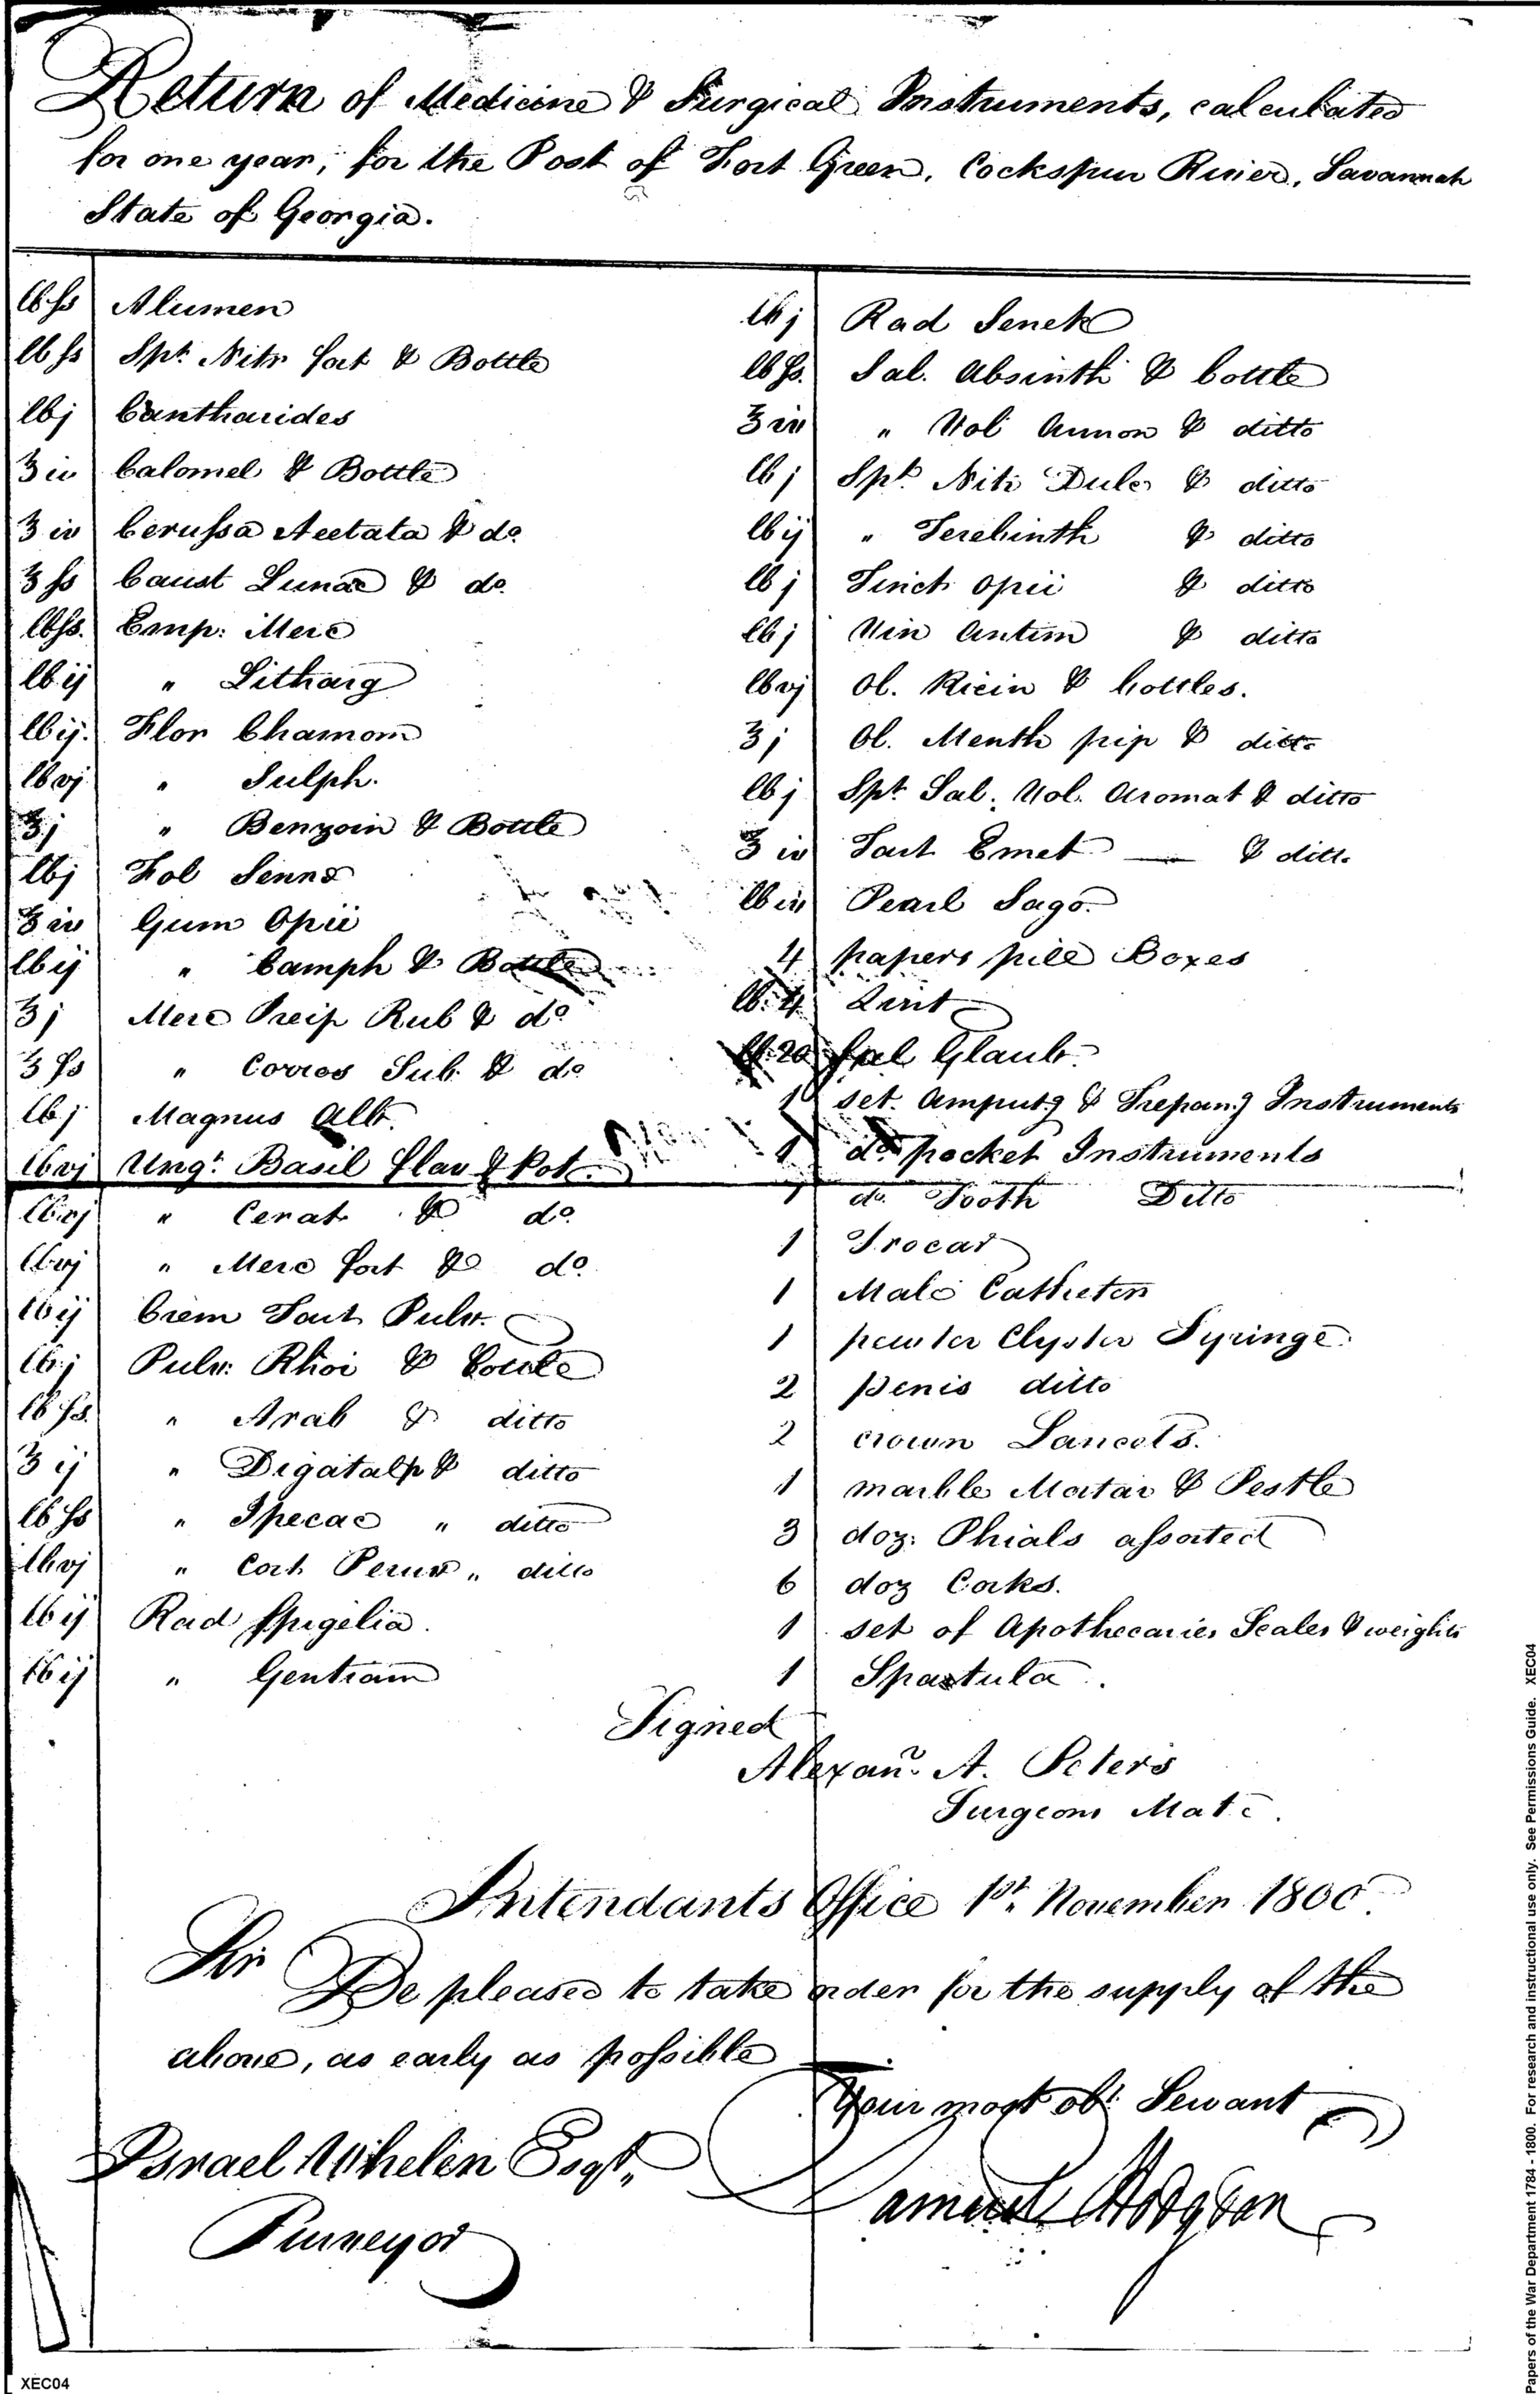 Return of Medicine & Surgical Instruments, calculated
for one year, for the Post of Fort Green, Cockspur River, Savannah
State of Georgia.
lb ss Alumen
lb ss Spt. Nitr fort & Bottle
lb j Cantharides
℥ iv Calomel & Bottle
℥ iv Cerussa Acetata & do.
℥ ss Caust Lunae & do.
lb ss. Emp: Merc
lb ij " Litharg
lb ij. Flor Chamom
lb vj " Sulph.
℥ j " Benzoin & Bottle
lb j Fol Senna
℥ iv Gum Opii
lb ij " Camph & Bottle
℥ j Merc Precip Rub & do.
℥ ss " Corros Sub. & do.
lb j Magnus Alb.
lb vj Ungt. Basil flav & Pot.
lb vj " Cerat & do.
lb vj " Merc fort & do.
lb ij Crem Tart Pulv.
lb j Pulv: Rhoi & Bottle
lb ss. " Arab & ditto
℥ ij " Digatalis & ditto
lb ss " Ipecac " ditto
lb vj " Cort Peruv " ditto
lb ij Rad Spigelia.
lb ij " Gentiam
lb j Rad Senek
lb ss. Sal. Absinth & bottle
℥ iv " Vol Ammon & ditto
lb j Spt. Nitr Dulc & ditto
lb ij " Terebinth & ditto
lb j Tinct opii & ditto
lb j Vin Antim & ditto
lb vj Ol. Ricin & bottles.
℥ j Ol. Menth pip & ditto
lb j Spt. Sal. Vol. Aromat & ditto
℥ iv Tart Emet — & ditto
lb iv Pearl Sago.
4 papers pill Boxes
lb. 4 Lint
lb. 20 Sal Glaub.
1 set. Amputg & Trepang Instruments
1 do. pocket Instruments
1 do. Tooth Ditto
1 Trocar
1 Male Catheter
1 pewter Clyster Syringe.
2 penis ditto
2 crown Lancets.
1 marble Mortar & Pestle
3 doz. Phials assorted
6 doz Corks.
1 set of Apothecaries Scales & weights
1 Spatula.
Signed
Alexanr. A. Peters
Surgeons Mate.
Intendants Office 1st. November 1800.
Sir
Be pleased to take order for the supply of the
above, as early as possible
Your most obt. Servant
Samuel Hodgdon
Israel Whelen Esqr.
Purveyor
XEC04
Papers of the War Department 1784 - 1800. For research and instructional use only. See Permissions Guide. XEC04